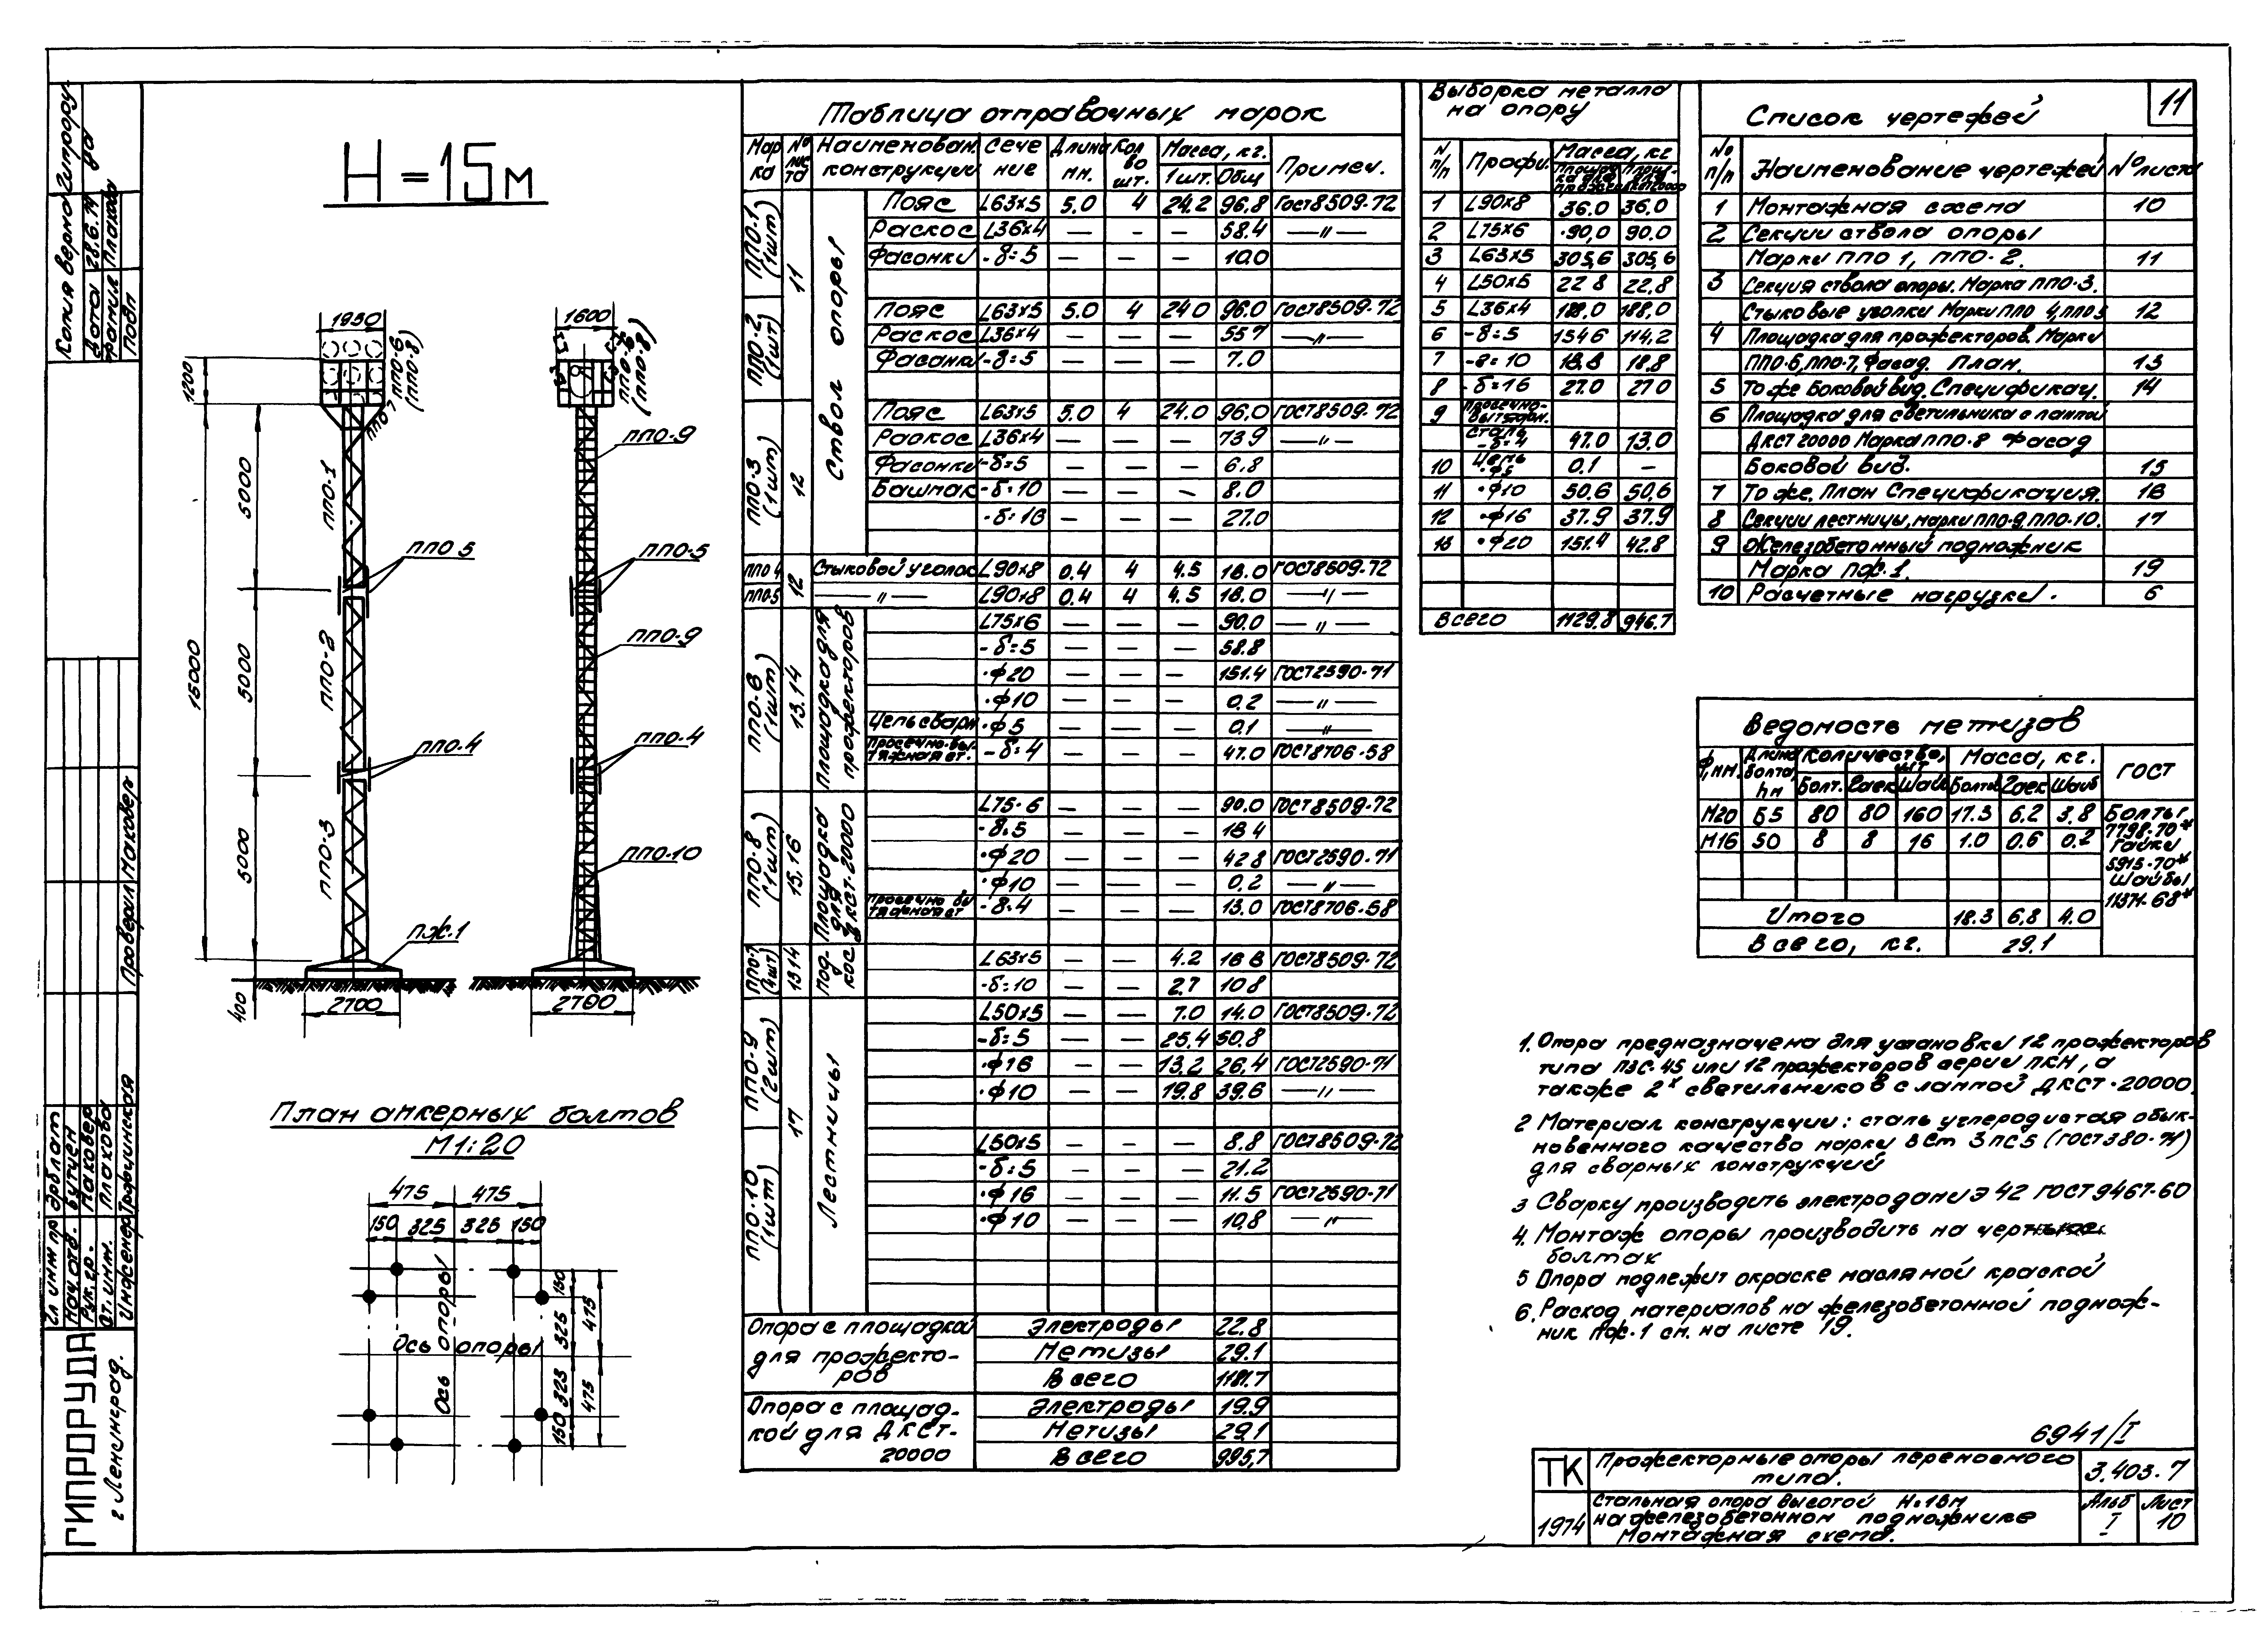 11
Н = 15 м
1950
1600
1200
15000
5000
5000
5000
400
2700
2700
ППО-6
(ППО-8)
ППО-6
(ППО-8)
ППО7
ППО-1
ППО-2
ППО-3
ППО 5
ППО-4
ПЖ-1
ППО-9
ППО-5
ППО-9
ППО-4
ППО-10
План анкерных болтов
М1:20
475 475
150 325 325 150
150
325
475
323
150
475
Ось опоры
Ось опоры
Таблица отправочных марок
Мар ка | № лис та | Наименован. конструкции | Сече ние | Длина мм. | Кол во шт. | Масса, кг. 1 шт. Общ | Примеч.
ППО-1 (1шт) 11 Ствол опоры
Пояс L63x5 5.0 4 24.2 96.8 Гост8509-72
Раскос L36x4 — - — 58.4 —"—
Фасонки -δ=5 — — — 10.0
ППО-2 (1шт)
Пояс L63x5 5.0 4 24.0 96.0 ГОСТ8509-72
Раскос L36x4 — — — 55.7 —"—
Фасонки -δ=5 — — — 7.0
ППО-3 (1шт) 12
Пояс L63x5 5.0 4 24.0 96.0 ГОСТ8509-72
Раскос L36x4 — — — 73.9 —"—
Фасонки -δ=5 — — — 6.8
Башмак -δ=10 — — — 8.0
-δ=16 — — — 27.0
ППО 4 12 Стыковой уголок L90x8 0.4 4 4.5 18.0 ГОСТ8509-72
ППО-5 —"— L90x8 0.4 4 4.5 18.0 —"—
ППО-6 (1шт) 13.14 Площадка для прожекторов
L75x6 — — — 90.0 —"—
-δ=5 — — — 58.8
•ф20 — — — 151.4 ГОСТ2590-71
•ф10 — — — 0.2 —"—
Цепь сварн •ф5 — — 0.1 —"—
Просечно-вытяжная ст. -δ=4 — — — 47.0 ГОСТ8706-58
ППО-8 (1шт) 15,16 Площадка для ДКСТ-20000
L75-6 — — — 90.0 ГОСТ8509-72
-δ=5 — — — 18.4
•ф20 — — — 42.8 ГОСТ2590-71
•ф10 — — — 0.2 —"—
Просечно вытяжная ст -δ=4 — — — 13.0 ГОСТ8706-58
ППО-7 (4шт) 13 14 Подкос
L63x5 — — 4.2 16.8 ГОСТ8509-72
-δ=10 — — 2.7 10.8
ППО-9 (2шт) 17 Лестницы
L50x5 — — 7.0 14.0 ГОСТ8509-72
-δ=5 — — 25.4 50.8
•ф16 — — 13.2 26.4 ГОСТ2590-71
•ф10 — — 19.8 39.6 —"—
ППО-10 (1шт)
L50x5 — — — 8.8 ГОСТ8509-72
-δ=5 — — — 21.2
•ф16 — — — 11.5 ГОСТ2590-71
•ф10 — — — 10.8 —"—
Опора с площадкой для прожекторов
Электроды 22.8
Метизы 29.1
Всего 1181.7
Опора с площадкой для ДКСТ-20000
Электроды 19.9
Метизы 29.1
Всего 995,7
Выборка металла на опору
N п/п Профи. Масса, кг
1 L90x8 36.0 36.0
2 L75x6 90,0 90.0
3 L63x5 305,6 305,6
4 L50x5 22 8 22.8
5 L36x4 188.0 188,0
6 -δ=5 154 6 114,2
7 -δ=10 18.8 18.8
8 -δ=16 27.0 27 0
9 Просечно-вытяжн. сталь -δ=4 47.0 13.0
10 Цепь •ф5 0.1 —
11 •ф10 50.6 50,6
12 •ф16 37.9 37.9
13 •ф20 151.4 42.8
Всего 1129.8 946.7
Список чертежей
№ п/п Наименование чертежей № листа
1 Монтажная схема 10
2 Секции ствола опоры
Марки ППО 1, ППО-2. 11
3 Секция ствола опоры. Марка ППО-3.
Стыковые уголки Марки ППО 4, ППО 5 12
4 Площадка для прожекторов. Марки
ППО-6, ППО-7, Фасад. План. 13
5 То же Боковой вид. Спецификац. 14
6 Площадка для светильника с лампой
ДКСТ 20000 Марка ППО-8 Фасад
Боковой вид. 15
7 То же. План Спецификация. 16
8 Секции лестницы, марки ППО-9, ППО-10. 17
9 Железобетонный подножник
Марка ПЖ-1. 19
10 Расчетные нагрузки. 6
Ведомость метизов
Ф, мм. Длина болта, мм Количество, шт Масса, кг. ГОСТ
Болт. Гаек Шайб Болтов Гаек Шайб
М20 65 80 80 160 17.3 6.2 3.8 Болты 7798-70*
М16 50 8 8 16 1.0 0.6 0.2 Гайки 5915-70*
Шайбы 11371-68*
Итого 18.3 6,8 4.0
Всего, кг. 29.1
1. Опора предназначена для установки 12 прожекторов
типа ПЗС-45 или 12 прожекторов серии ПКН, а
также 2х светильников с лампой ДКСТ-20000.
2 Материал конструкции: сталь углеродистая обык-
новенного качества марки В Ст 3 пс 5 (ГОСТ380-71)
для сварных конструкций
3 Сварку производить электродами Э 42 ГОСТ 9467-60
4. Монтаж опоры производить на черных
болтах
5 Опора подлежит окраске масляной краской
6. Расход материалов на железобетонной поднож-
ник ПЖ-1 см. на листе 19.
6941/I
ТК Прожекторные опоры переносного типа. 3.403-7
1974 Стальная опора высотой Н=15м
на железобетонном подножнике
Монтажная схема.
Альб I Лист 10
Копия верна Гипрору-да
Дата 28.6.74
Плакова
Подп
Проверил Маковер
Гл инж пр
Нач. отд. Бутчен
Рук. гр. Маковер
Ст. инж. Плахова
Инженер Трофчинская
ГИПРОРУДА
г Ленинград.